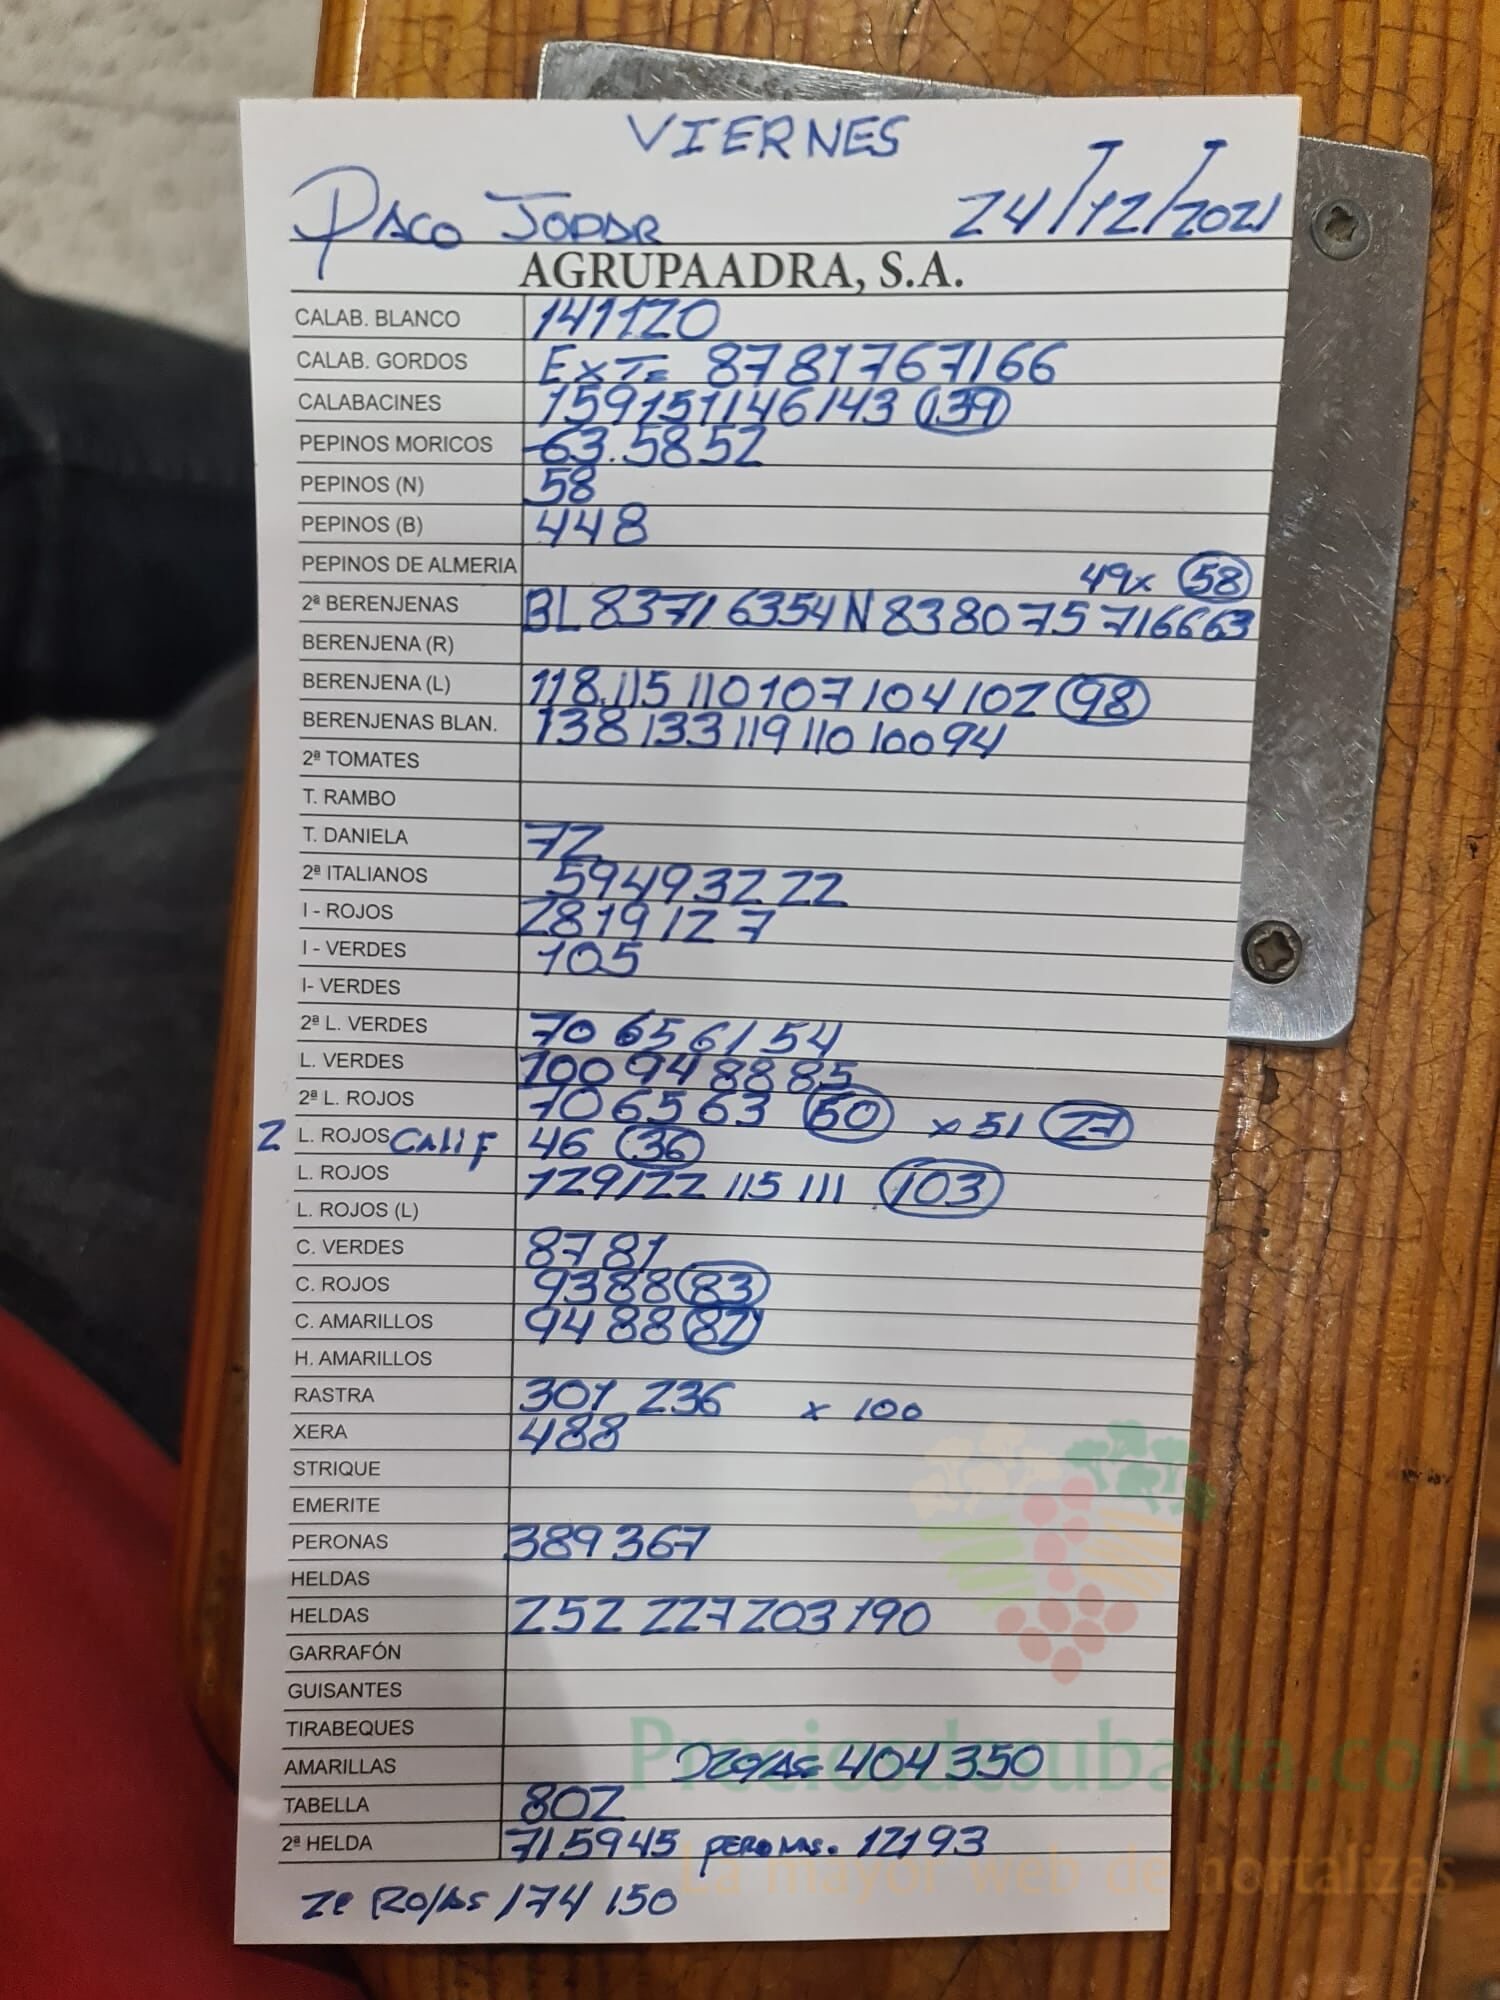 VIERNES
PACO JODAR 24/12/2021
AGRUPAADRA, S.A.
CALAB. BLANCO 141 120
CALAB. GORDOS EXT= 87 81 76 71 66
CALABACINES 159 151 146 143 139
PEPINOS MORICOS 63.58 52
PEPINOS (N) 58
PEPINOS (B) 44 8
PEPINOS DE ALMERIA 49x 58
2ª BERENJENAS BL 83 71 63 54 N 83 80 75 71 66 63
BERENJENA (R)
BERENJENA (L) 118.115 110 107 104 102 98
BERENJENAS BLAN. 138 133 119 110 100 94
2ª TOMATES
T. RAMBO
T. DANIELA 72
2ª ITALIANOS 59 49 32 22
I - ROJOS 28 19 12 7
I - VERDES 105
I- VERDES
2ª L. VERDES 70 65 61 54
L. VERDES 100 94 88 85
2ª L. ROJOS 70 65 63 60 x 51 27
2 L. ROJOS CALIF 46 36
L. ROJOS 129 122 115 111 103
L. ROJOS (L)
C. VERDES 87 81
C. ROJOS 93 88 83
C. AMARILLOS 94 88 82
H. AMARILLOS
RASTRA 301 236 x 100
XERA 488
STRIQUE
EMERITE
PERONAS 389 367
HELDAS
HELDAS 252 227 203 190
GARRAFÓN
GUISANTES
TIRABEQUES
AMARILLAS 404 350
TABELLA 802
2ª HELDA 71 59 45 PERONAS. 121 93
2ª ROJAS 174 150
Preciosdesubasta.com
La mayor web de hortalizas